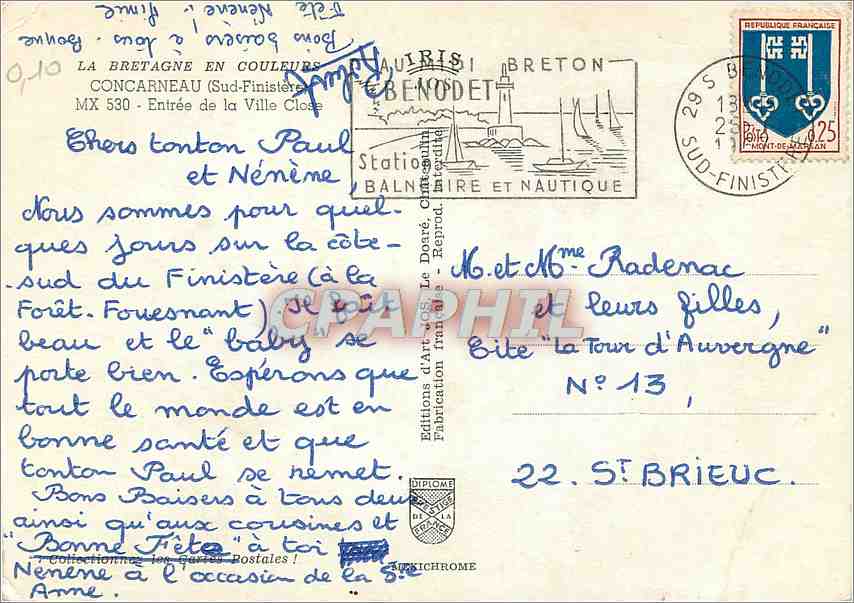 LA BRETAGNE EN COULEURS
CONCARNEAU (Sud-Finistère)
MX 530 - Entrée de la Ville Close
Chers tonton Paul
et Nénène,
Nous sommes pour quel-
ques jours sur la côte-
sud du Finistère (à la
Forêt-Fouesnant) Il fait
beau et le "baby" se
porte bien. Espérons que
tout le monde est en
bonne santé et que
tonton Paul se remet.
Bons Baisers à tous deux
ainsi qu'aux cousines et
"Bonne Fête" à toi
Collectionnez les Cartes Postales !
Nénène à l'occasion de la Ste
Anne.
Bons baisers à tous ! Bonne
Fête Nénène !
0,10
IRIS
AU BRETON
BENODET
Station
BALNEAIRE ET NAUTIQUE
29 S BENODET
SUD-FINISTERE
REPUBLIQUE FRANÇAISE
0,25
MONT-DE-MARSAN
Editions d'Art JOS Le Doaré, Châteaulin
Fabrication française - Reprod. Interdite
CPAPHIL
M. et Mme Radenac
et leurs filles,
Cité "La Tour d'Auvergne"
No 13,
22. ST BRIEUC.
DIPLOME
PRESTIGE
DE LA
FRANCE
MEXICHROME